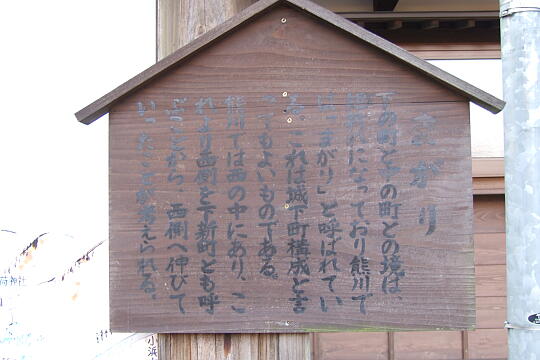 まがり
下の町と中の町との境は、
鍵形になっており熊川で
は「まがり」と呼ばれてい
る。これは城下町構成と言
ってもよいものである。
熊川では西の中にあり、こ
れより西側を下新町とも呼
ぶことから、西側へ伸びて
いったことが考えられる。
荷神社
小浜